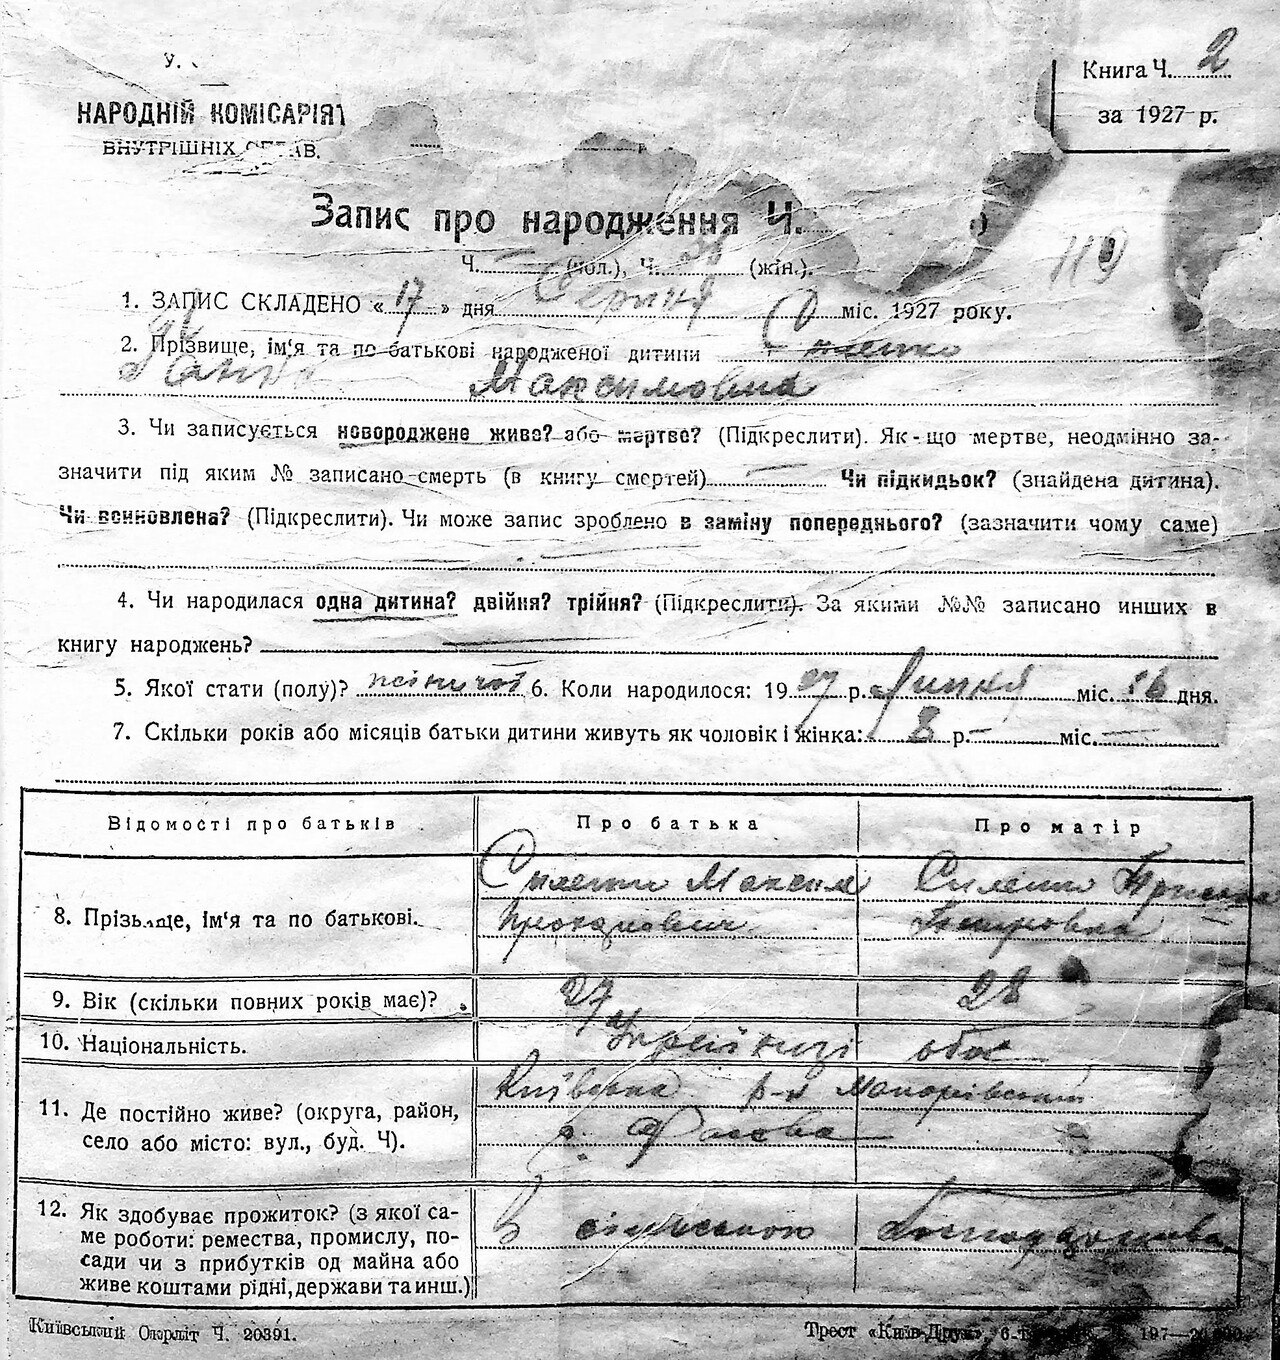 У.
Книга Ч. 2
НАРОДНІЙ КОМІСАРІЯТ
за 1927 р.
ВНУТРІШНІХ СПРАВ.
Запис про народження Ч.
119
Ч. — (чол.), Ч. (жін.).
1. ЗАПИС СКЛАДЕНО «17» дня Серпня міс. 1927 року.
2. Прізвище, ім'я та по-батькові народженої дитини
Максимовна
3. Чи записується новороджене живе? або мертве? (Підкреслити). Як-що мертве, неодмінно за-
значити під яким № записано смерть (в книгу смертей) — Чи підкидьок? (знайдена дитина).
Чи всиновлена? (Підкреслити). Чи може запис зроблено в заміну попереднього? (зазначити чому саме)
4. Чи народилася одна дитина? двійня? трійня? (Підкреслити). За якими №№ записано инших в
книгу народжень?
5. Якої стати (полу)? жіночої 6. Коли народилося: 1927 р. Липня міс. 16 дня.
7. Скільки років або місяців батьки дитини живуть як чоловік і жінка: 8 р. — міс. —
Відомості про батьків Про батька Про матір
Максим
8. Прізвище, ім'я та по батькові.
9. Вік (скільки повних років має)? 27 28
10. Національність. обоє
11. Де постійно живе? (округа, район, Київська р-н Макарівський
село або місто: вул., буд. Ч). с. Фасова
12. Як здобуває прожиток? (з якої са- В сільському господарстві
ме роботи: ремества, промислу, по-
сади чи з прибутків од майна або
живе коштами рідні, держави та инш.)
Київський Окрліт Ч. 20391. Трест «Київ-Друк», 6-